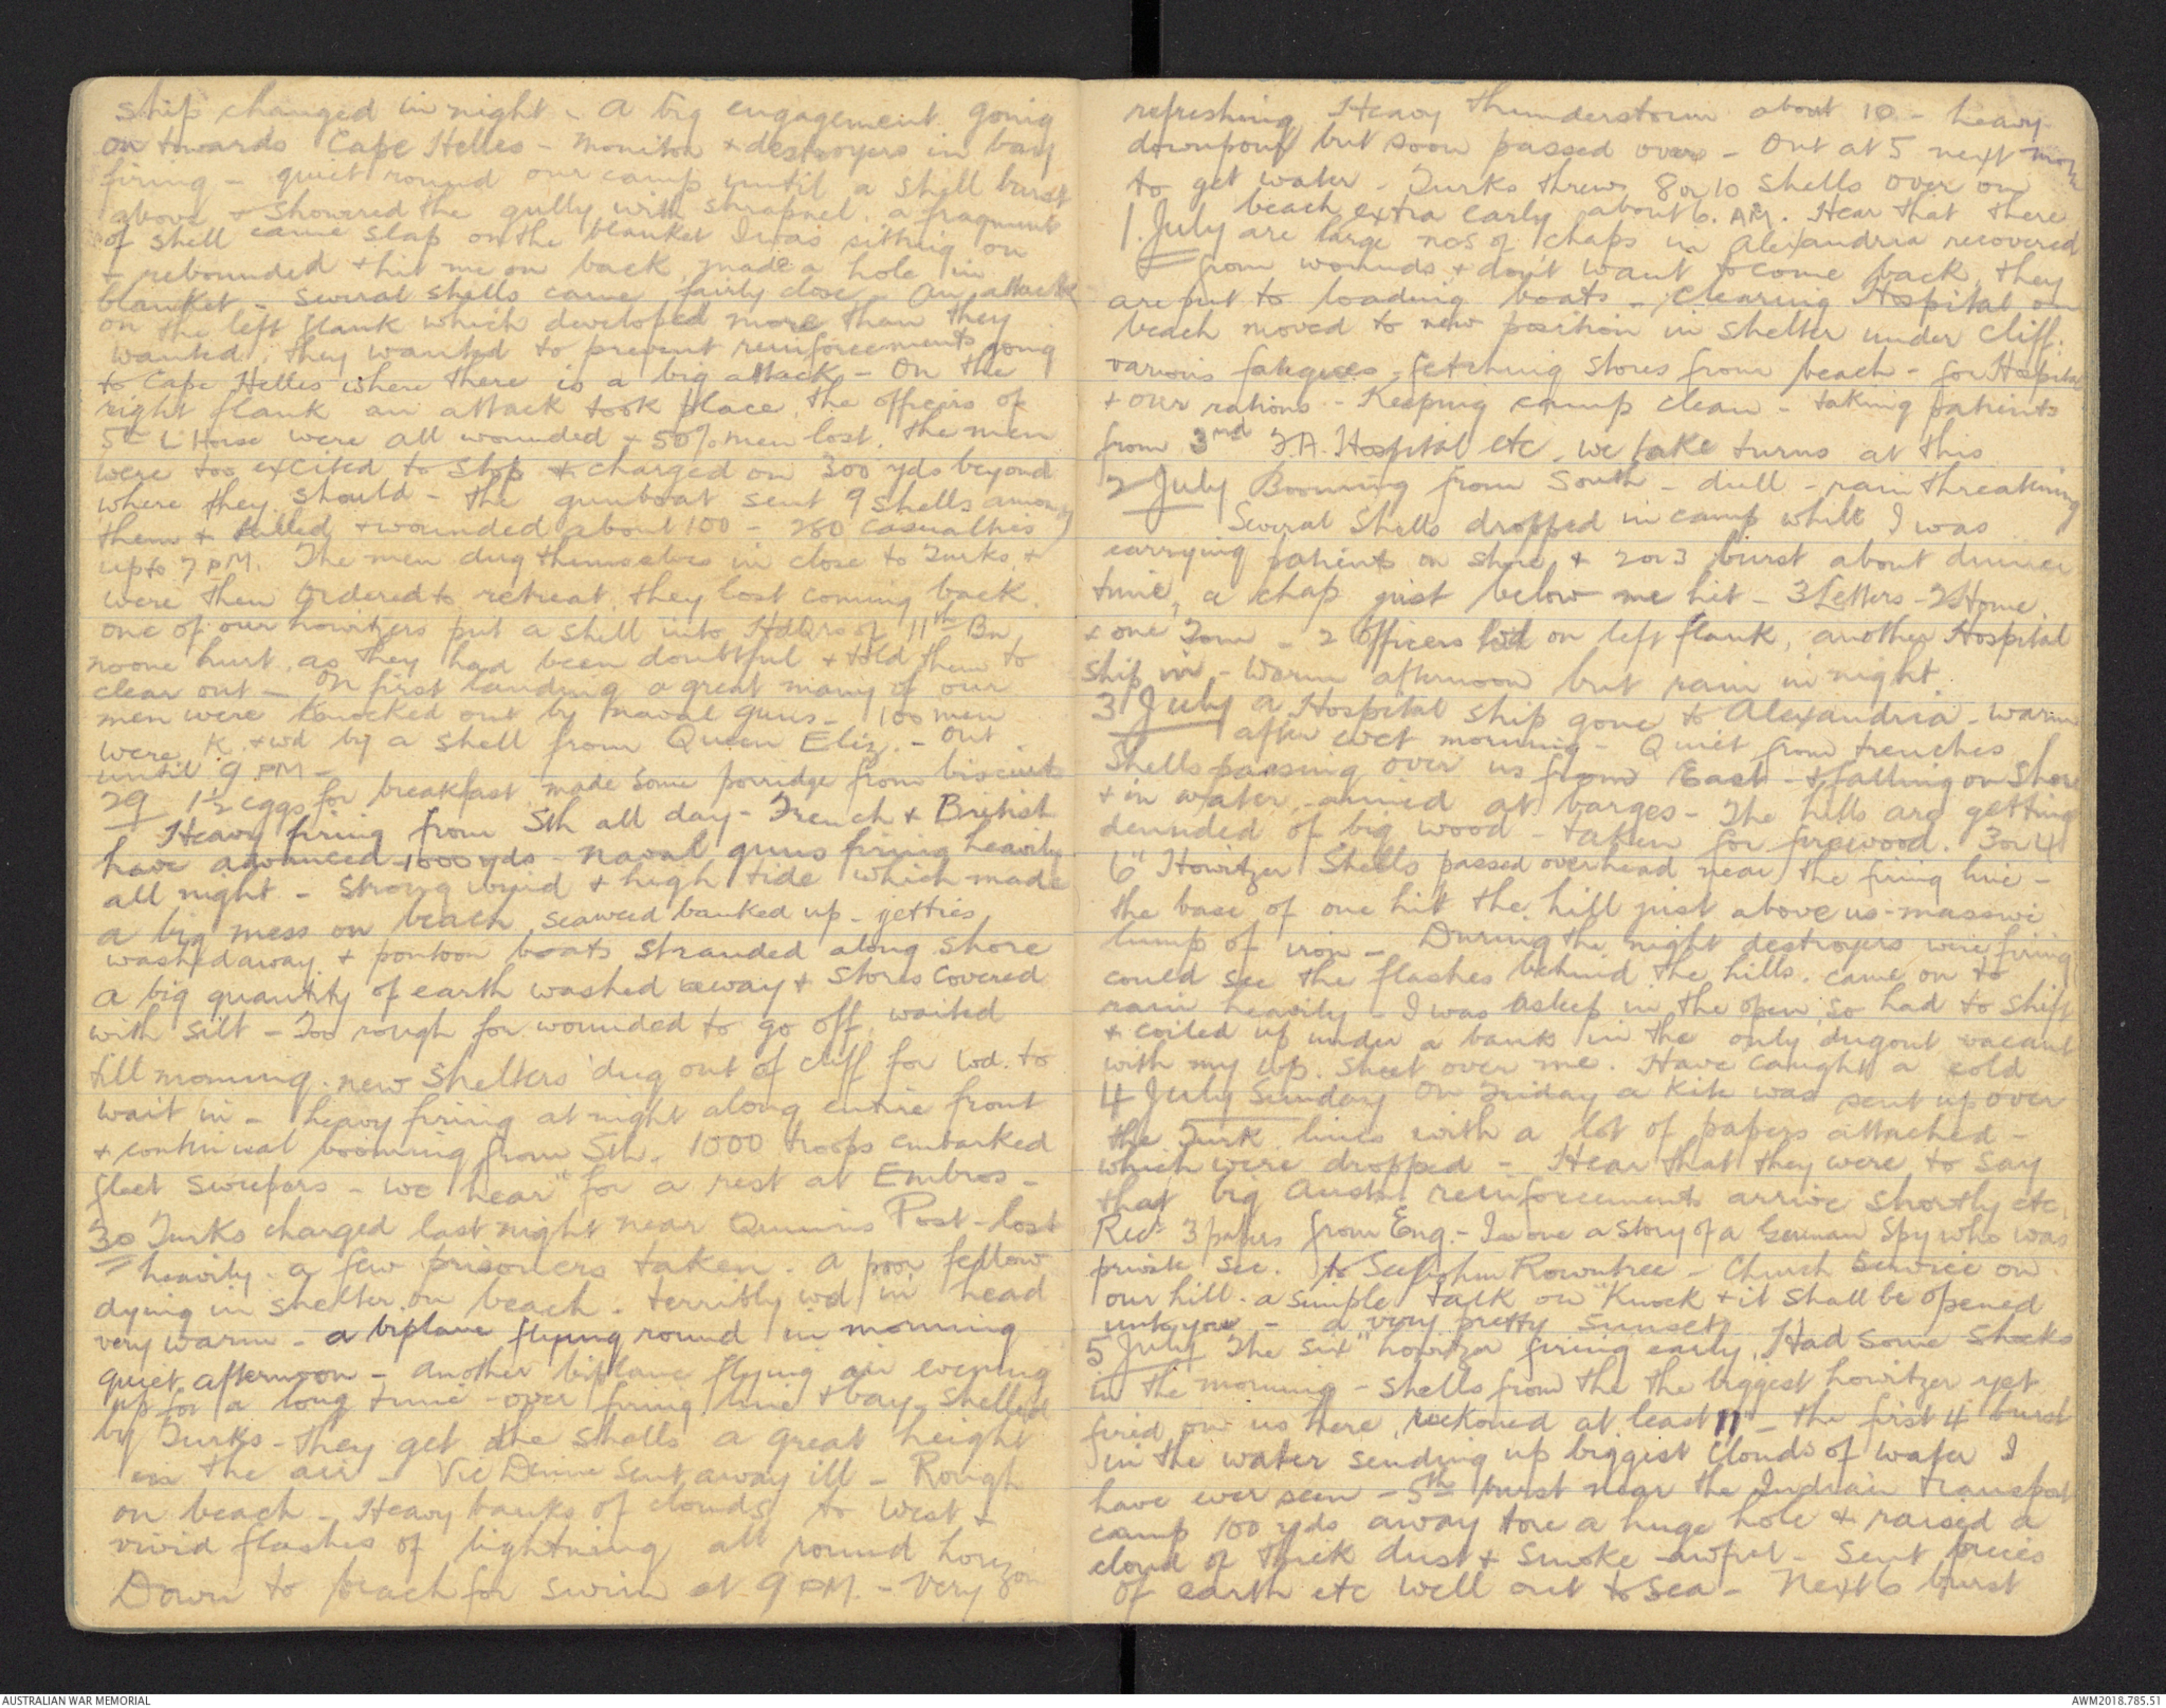 ship changed in night - a big engagement going
on towards Cape Helles - monitor & destroyers in bay
firing - quiet round our camp until a shell burst
above & showered the gully with shrapnel. a fragment
of shell came slap on the blanket I was sitting on
& rebounded & hit me on back, made a hole in
blanket - several shells came fairly close - An attack
on the left flank which developed more than they
wanted, they wanted to prevent reinforcements going
to Cape Helles where there is a big attack - On the
right flank an attack took place, the officers of
5th L Horse were all wounded & 50% men lost. The men
were too excited to stop & charged on 300 yds beyond
where they should - the gunboat sent 9 shells among
them & killed & wounded about 100 - 280 casualties
up to 7 PM. The men dug themselves in close to Turks, &
were then ordered to retreat, they lost coming back.
one of our howitzers put a shell into HdQrs of 11th Bn,
noone hurt, as they had been doubtful & told them to
clear out - On first landing a great many of our
men were knocked out by naval guns - 100 men
were K. & wd by a shell from Queen Eliz. - out
until 9 PM -
29 1½ eggs for breakfast made some porridge from biscuits
Heavy firing from Sth all day - French & British
have advanced 1000 yds - naval guns firing heavily
all night - strong wind & high tide which made
a big mess on beach, seaweed banked up - jetties
washed away & pontoon boats stranded along shore
a big quantity of earth washed away & stores covered
with silt - Too rough for wounded to go off, waited
till morning. new shelters dug out of cliff for wd. to
wait in - heavy firing at night along entire front
& continual booming from Sth. 1000 troops embarked
fleet sweepers - we hear "for a rest at Embros -
30 Turks charged last night near Quinns Post - lost
heavily. a few prisoners taken. a poor fellow
dying in shelter on beach. terribly wd in head
very warm - a biplane flying round in morning
quiet afternoon - another biplane flying in evening
up for a long time - over firing line & bay. Shelled
by Turks - they get the shells a great height
in the air - Vic sent away ill - Rough
on beach - Heavy banks of clouds to West &
vivid flashes of lightning all round horizon
Down to beach for swim at 9 PM. - Very
refreshing Heavy thunderstorm about 10 - heavy
downpour but soon passed over - Out at 5 next morn
to get water - Turks threw 8 or 10 shells over on
beach extra early about 6. AM. Hear that there
1. July are large nos of chaps in Alexandria recovered
from wounds & don't want to come back, they
are put to loading boats - Clearing Hospital on
beach moved to new position in shelter under cliff.
various fatigues, fetching stores from beach - for Hospital
& our rations - Keeping camp clean - taking patients
from 3rd F.A. Hospital etc, we take turns at this
2 July Booming from South - dull - rain threatening
Several shells dropped in camp while I was
carrying patients on shore & 2 or 3 burst about dinner
time, a chap just below me hit - 3 Letters - 2 Home
& one Tom - 2 officers on left flank, another Hospital
ship in - warm afternoon but rain in night
3 July a Hospital ship gone to Alexandria - warm
after wet morning - Quiet from trenches
Shells passing over us from East - & falling on shore
& in water, - aimed at barges - The hills are getting
denuded of big wood - taken for firewood. 3 or 4
6" Howitzer Shells passed overhead near the firing line -
the base of one hit the hill just above us - massive
lump of iron - During the night destroyers were firing
could see the flashes behind the hills. came on to
rain heavily - I was asleep in the open, so had to shift
& coiled up under a bank in the only dugout vacant
with my wp. sheet over me. Have caught a cold
4 July Sunday On Friday a kite was sent up over
the Turk lines with a lot of papers attached -
which were dropped - Hear that they were to say
that big Austn reinforcements arrive shortly etc.
Recd 3 papers from Eng. - In one a story of a German Spy who was
private sec. to Rowntree - Church Service on
our hill. a simple talk on "Knock & it shall be opened
unto you - a very pretty sunset
5 July The six" howitzer firing early. Had some shocks
in the morning - shells from the the biggest howitzer yet
fired on us here, reckoned at least 11" - the first 4 burst
in the water sending up biggest clouds of water I
have ever seen - 5th burst near the Indian transport
camp 100 yds away tore a huge hole & raised a
cloud of thick dust & smoke - awful - Sent pieces
of earth etc well out to sea - Next 6 burst
AUSTRALIAN WAR MEMORIAL
AWM2018.785.51